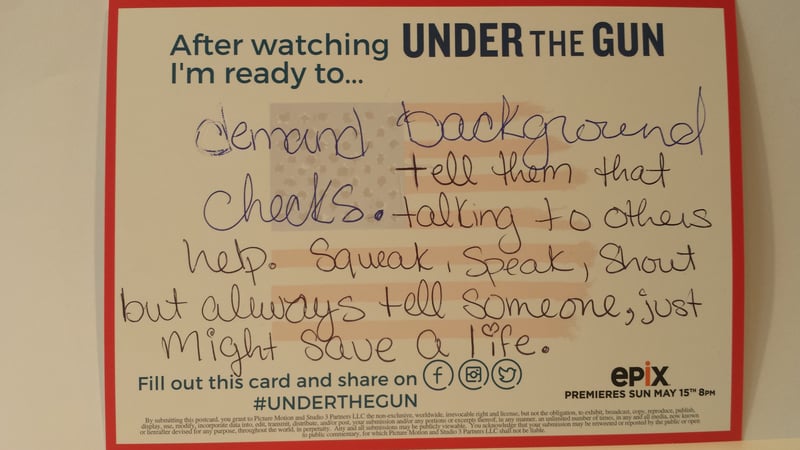 After watching UNDER THE GUN
I'm ready to...
demand background
tell them that
checks. talking to others
help. Squeak, Speak, Shout
but always tell someone, just
might save a life.
Fill out this card and share on
#UNDERTHEGUN
epix
PREMIERES SUN MAY 15TH 8PM
By submitting this postcard, you grant to Picture Motion and Studio 3 Partners LLC the non-exclusive, worldwide, irrevocable right and license, but not the obligation, to exhibit, broadcast, copy, reproduce, publish,
display, use, modify, incorporate data into, edit, transmit, distribute, and/or post, your submission and/or any portions or excerpts thereof, in any manner, an unlimited number of times, in any and all media, now known
or hereafter devised for any purpose, throughout the world, in perpetuity. Any and all submissions may be publicly viewable. You acknowledge that your submission may be retweeted or reposted by the public or open
to public commentary, for which Picture Motion and Studio 3 Partners LLC shall not be liable.